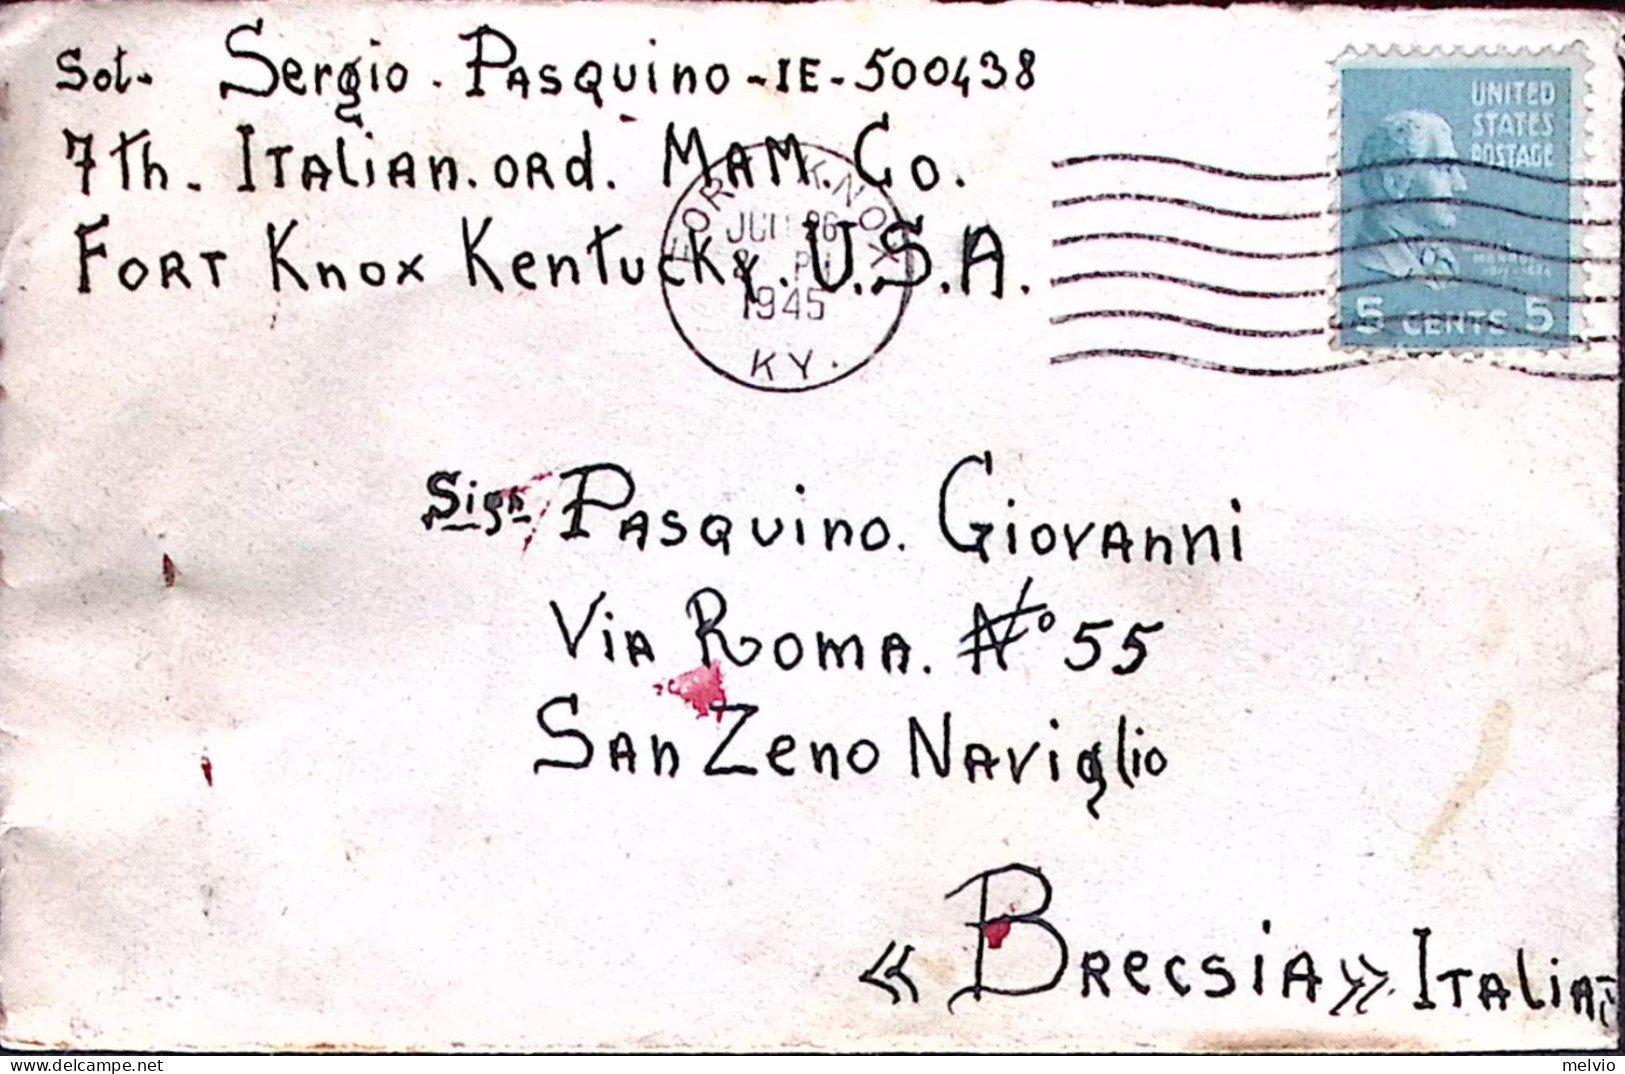 Sol. Sergio. Pasquino-IE-500438
7th. Italian. ord. Mam. Co.
Fort Knox Kentucky. U.S.A.
FORT KNOX
1945
KY.
UNITED
STATES
POSTAGE
5 CENTS 5
Sign Pasquino. Giovanni
Via Roma. N° 55
San Zeno Naviglio
« Brecsia » Italia
melvio